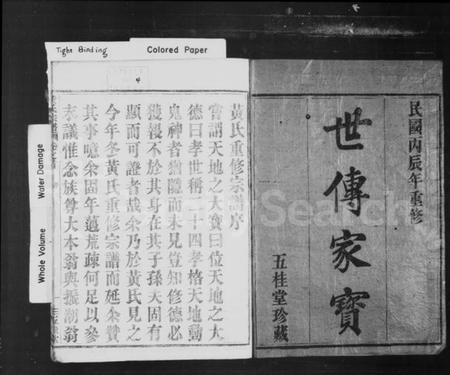 Tight Binding
Colored Paper
Water Damage
Whole Volume
民國丙辰年重修
世傳家寶
五桂堂珍藏
黃氏重修宗譜序
嘗謂天地之大寶曰位天地之大
德曰孝世稱二十四孝格天地動
鬼神者猶隱而未見豈知修德必
獲報不於其身在其子孫天固有
顯而可證者哉余乃於黃氏見之
今年冬黃氏重修宗譜而延余贊
其事噫余固年邁荒疎何足以參
末議惟念族尊大本翁與振朝翁